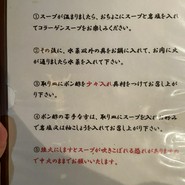 ①スープが温まりましたら、おちょこにスープと岩塩を入れて
コラーゲンスープをお楽しみください。
②その後に、水菜以外の具をお鍋に入れて、お肉に火
が通りましたら水菜を入れて下さい。
③取り皿にポン酢を少々入れ具材をつけてお召し上が
り下さい。
④ポン酢の苦手な方は、取り皿にスープを入れ
岩塩又はかんずりをお好みで入れてお召し上がり下さい
⑤強火にしますとスープが吹きこぼれる恐れがありますの
で中火のままでお願いいたします。